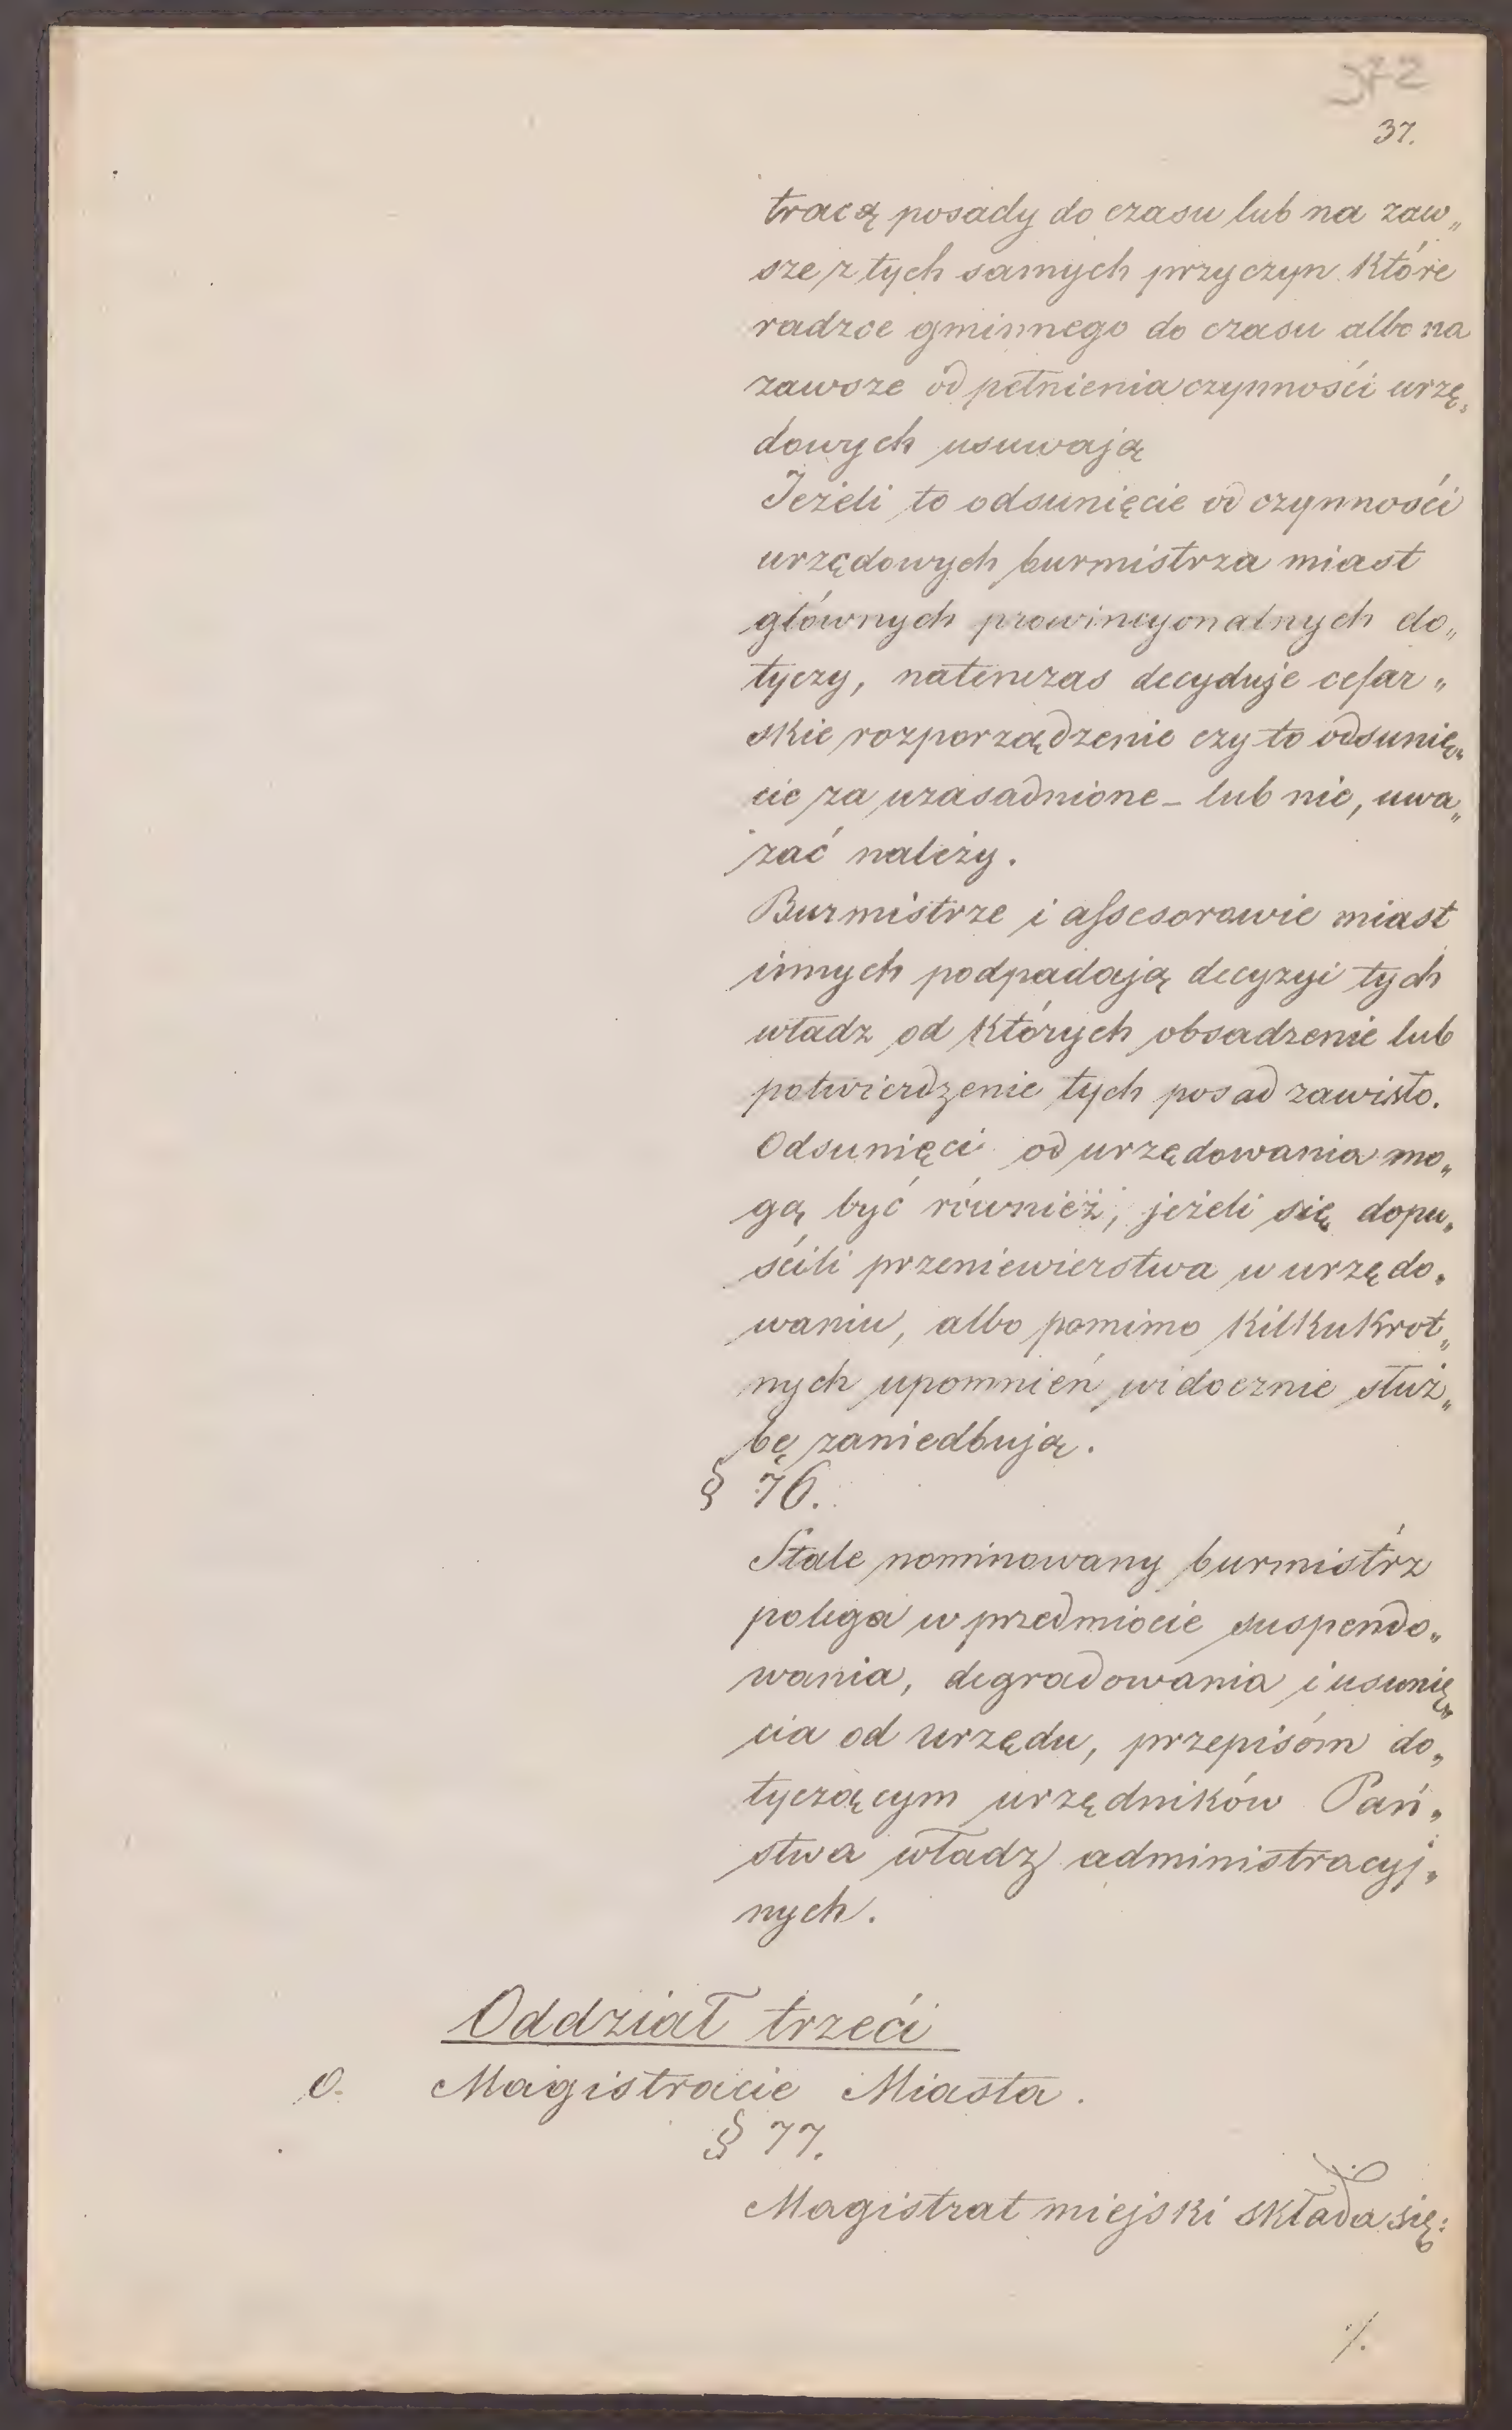 372
37.
tracą posady do czasu lub na zaw„
sze z tych samych przyczyn które
radzce gminnego do czasu albo na
zawsze od pełnienia czynności urzę„
dowych usuwają
Jeżeli to odsunięcie od czynności
urzędowych burmistrza miast
głównych prowincyonalnych do„
tyczy, natenczas decyduje cesar„
skie rozporządzenie czy to odsunię„
cie za uzasadnione – lub nie, uwa„
żać należy.
Burmistrze i assesorowie miast
innych podpadają decyzyi tych
władz od których obsadzenie lub
potwierdzenie tych posad zawisło.
Odsunięci od urzędowania mo„
gą być również, jeżeli się dopu„
ścili przeniewierstwa w urzędo„
waniu, albo pomimo kilkukrot„
nych upomnień widocznie służ„
bę zaniedbują.
§ 76.
Stale nominowany burmistrz
polega w przedmiocie suspendo„
wania, degradowania i usunię„
cia od urzędu, przepisom do„
tyczącym urzędników Pań„
stwa władz administracyj„
nych.
Oddział trzeci
O. Magistracie Miasta.
§ 77.
Magistrat miejski składa się:
·/.